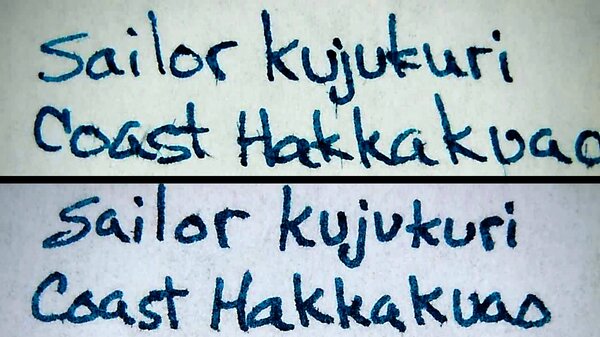 Sailor kujukuri
Coast Hakkakuao
Sailor kujukuri
Coast Hakkakuao